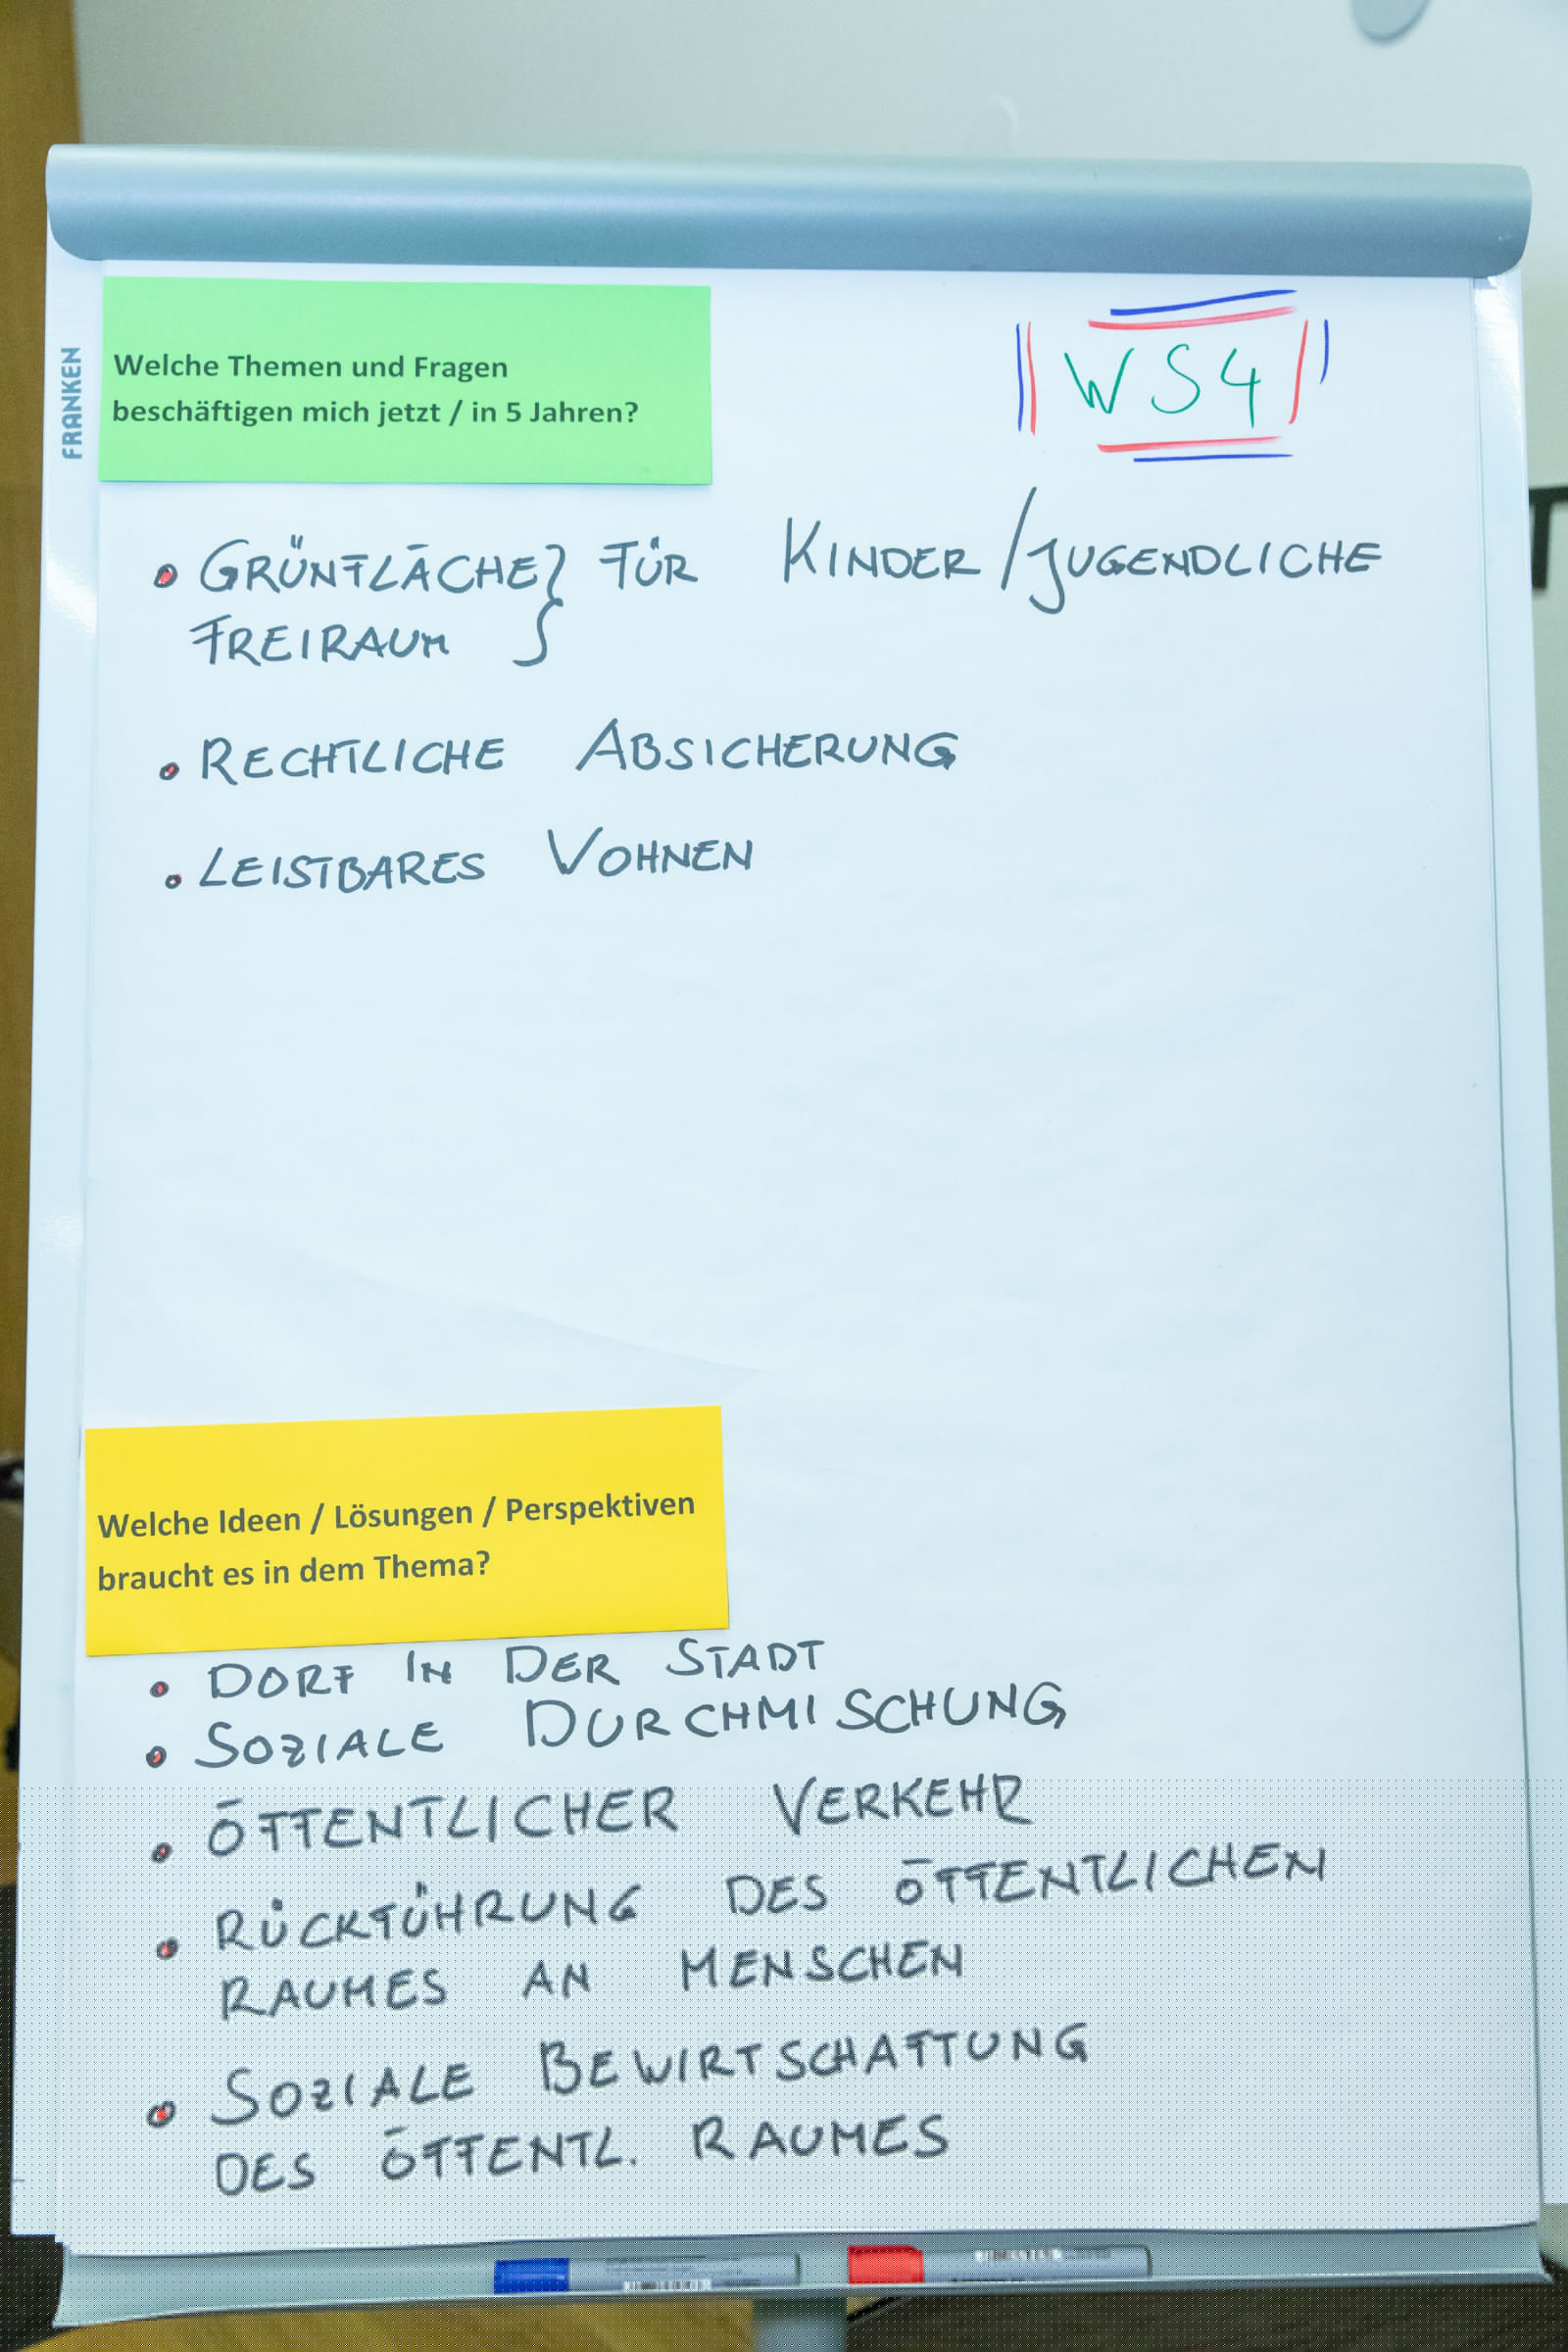 FRANKEN
Welche Themen und Fragen
beschäftigen mich jetzt / in 5 Jahren?
WS4
• GRÜNFLÄCHE } FÜR KINDER/JUGENDLICHE
FREIRAUM
• RECHTLICHE ABSICHERUNG
• LEISTBARES WOHNEN
Welche Ideen / Lösungen / Perspektiven
braucht es in dem Thema?
• DORF IN DER STADT
• SOZIALE DURCHMISCHUNG
• ÖFFENTLICHER VERKEHR
• RÜCKFÜHRUNG DES ÖFFENTLICHEN
RAUMES AN MENSCHEN
• SOZIALE BEWIRTSCHAFTUNG
DES ÖFFENTL. RAUMES